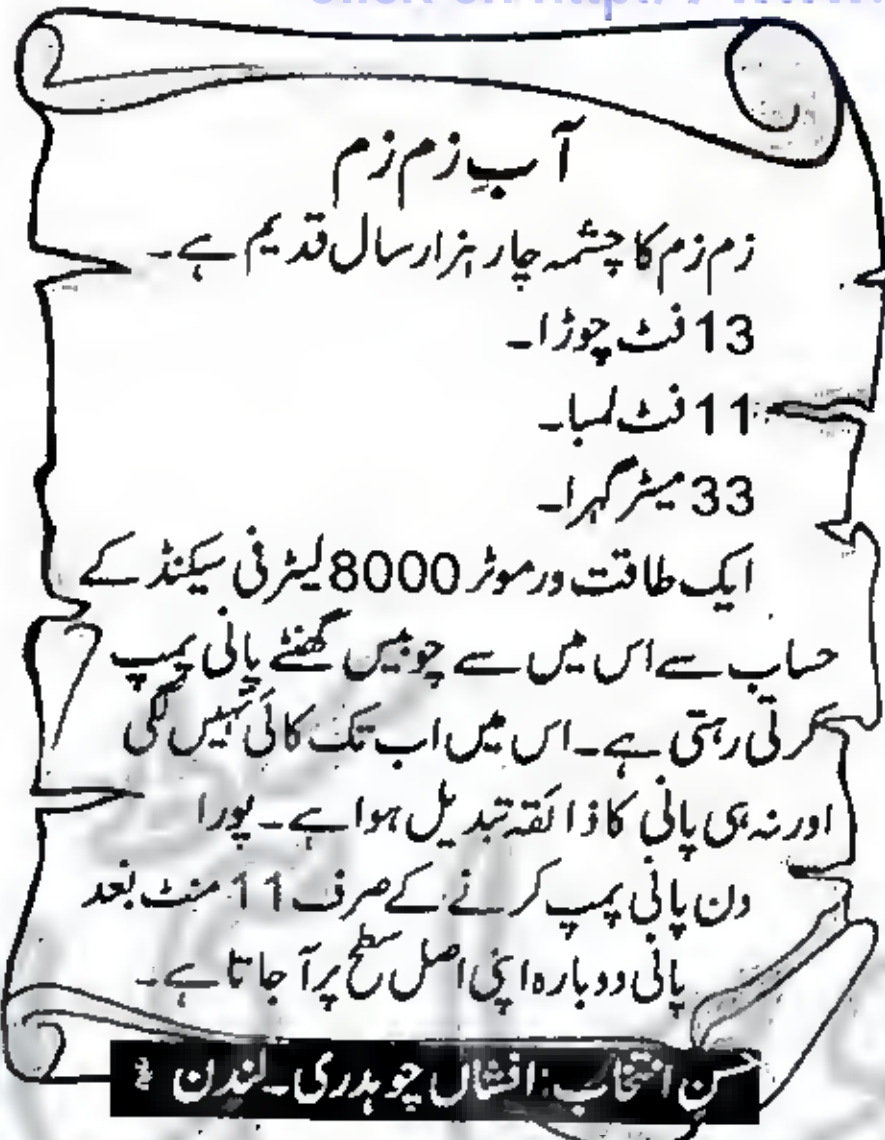 آبِ زم زم
زم زم کا چشمہ چار ہزار سال قدیم ہے۔
13 فٹ چوڑا۔
11 فٹ لمبا۔
33 میٹر گہرا۔
ایک طاقت ور موٹر 8000 لیٹر فی سیکنڈ کے
حساب سے اس میں سے چوبیس گھنٹے پانی پمپ
کرتی رہتی ہے۔ اس میں اب تک کائی نہیں لگی
اور نہ ہی پانی کا ذائقہ تبدیل ہوا ہے۔ پورا
دن پانی پمپ کرنے کے صرف 11 منٹ بعد
پانی دوبارہ اپنی اصل سطح پر آ جاتا ہے۔
حسن انتخاب: افشاں چوہدری۔ لندن